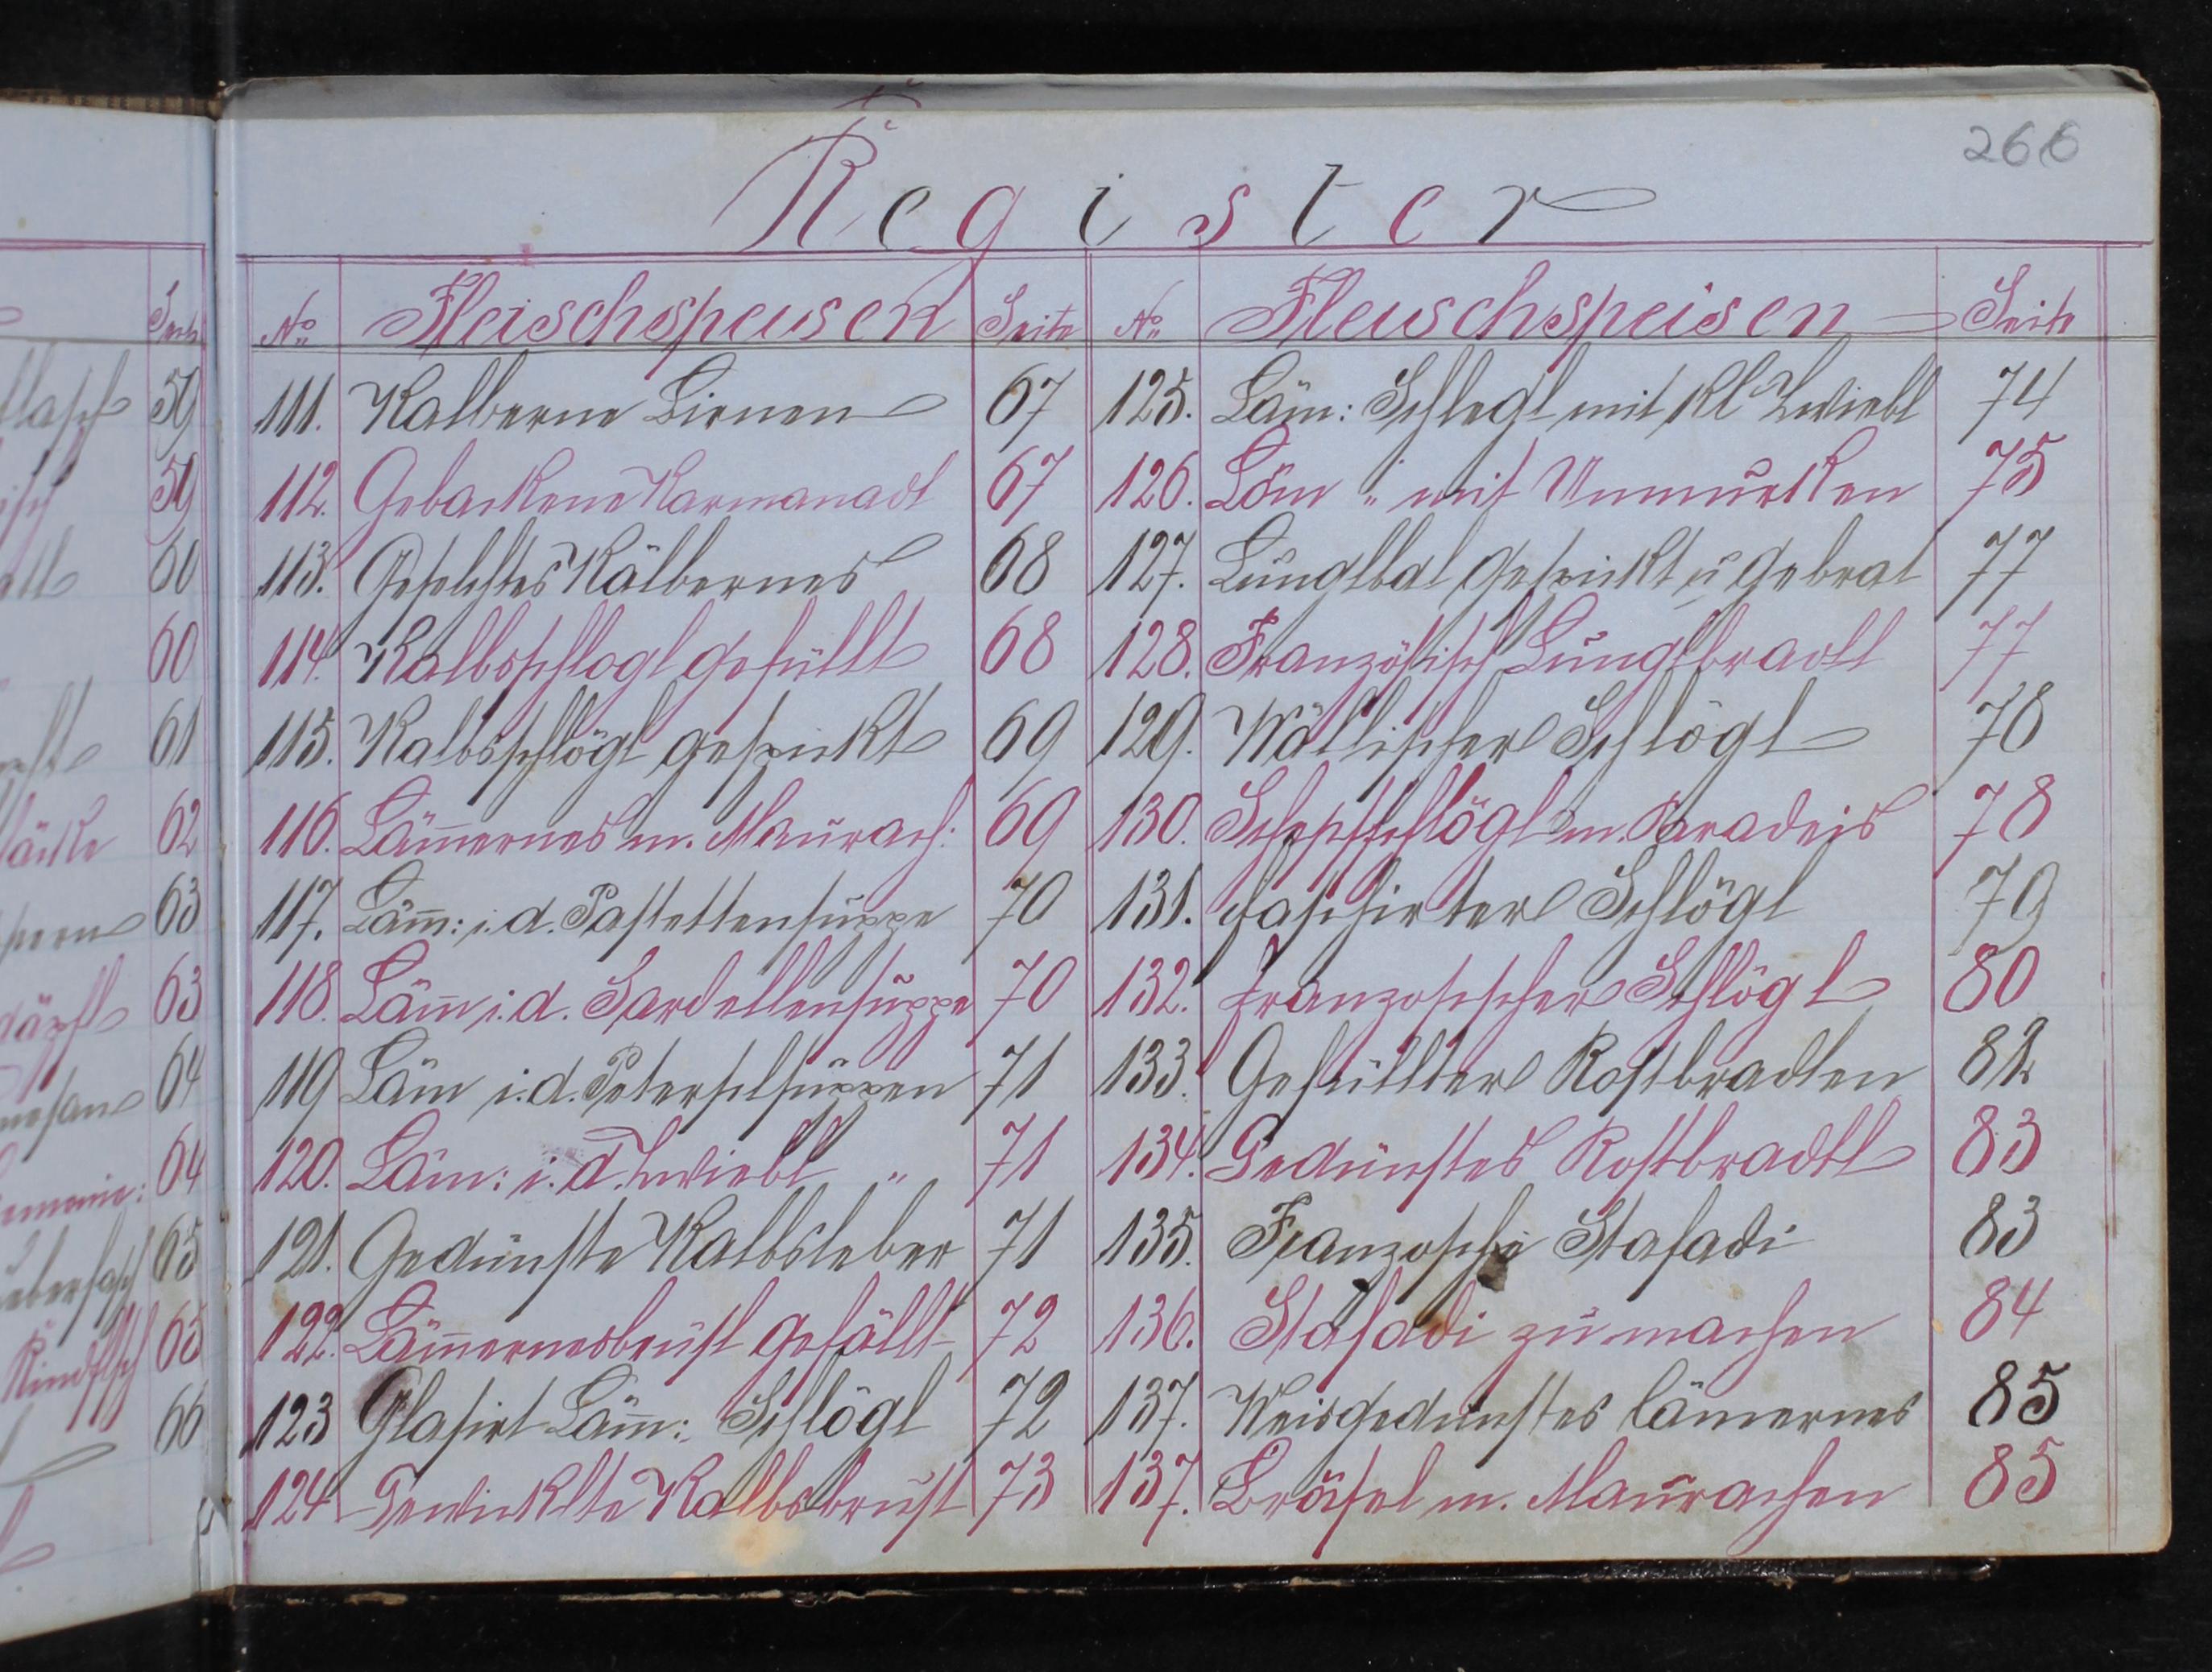 266
Register
Seite
No Fleischspeisen Seite No Fleischspeisen Seite
59
111. Kalberne Birnen 67 125. Läm: Schlegl mit Kl Zwiebl 74
59
112. Gebackene Karmanadl 67 126. Läm " mit Unmurken 75
60
113. Geselchtes Kälbernes 68 127. Lunglbal gespickt u gebrat 77
60
114. Kalbsschlogl gefüllt 68 128. Französisch Lunglbradl 77
61
115. Kalbsschlögl gespickt 69 129. Wällischer Schlögl 78
62
116. Läm̄ernes m. Maurach: 69 130. Schepsschlögl m. Paradeis 78
63
117. Läm̄: i. d. Pastettensuppe 70 131. Faschirter Schlögl 79
63
118. Läm̄ i. d. Sardellensuppe 70 132. Franzosischer Schlögl 80
64
119 Läm i. d. Petersilsuppen 71 133. Gefüllter Rostbradlen 82
64
120. Läm: i. d. Zwiebl " 71 134. Gedünstes Rostbradtl 83
65
121. Gedünste Kalbsleber 71 135. Franzoschi Stafadi 83
Rindflsch 65
122. Läm̄ernesbrust gefällt 72 136. Stafadi zu machen 84
66
123 Glasirt Läm̄: Schlögl 72 137. Weisgedunstes lämernes 85
124 Gewicklte Kalbsbrust 73 137. Bräsel m. Maurachen 85